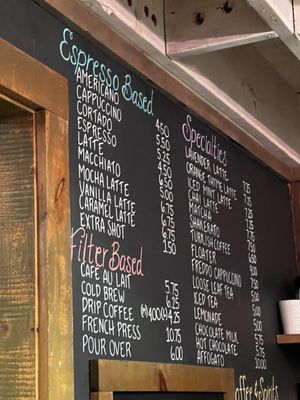 Espresso Based
AMERICANO 4.50
CAPPUCCINO 5.50
CORTADO 5.25
ESPRESSO 4.50
LATTE 6.00
MACCHIATO 5.00
MOCHA LATTE 6.75
VANILLA LATTE 6.75
CARAMEL LATTE 6.75
EXTRA SHOT 1.50
Filter Based
CAFÉ AU LAIT 5.75
COLD BREW
DRIP COFFEE 4.25
FRENCH PRESS 10.75
POUR OVER 6.00
Specialties
LAVENDER LATTE 7.25
ORANGE THYME LATTE 7.25
ICED MINT LATTE
CHAI LATTE
MATCHA
SHAKERATO
TURKISH COFFEE
FLOATER
FREDDO CAPPUCCINO
LOOSE LEAF TEA
ICED TEA
LEMONADE 5.00
CHOCOLATE MILK
HOT CHOCOLATE
AFFOGATO 10.00
Coffee & Spirits